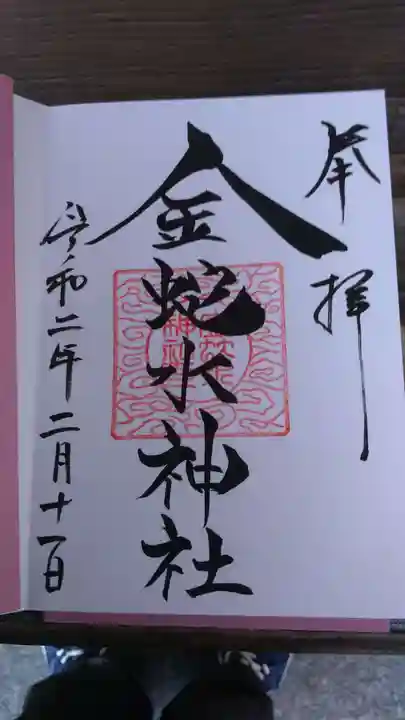 奉拝
金蛇水神社
令和二年二月十一日